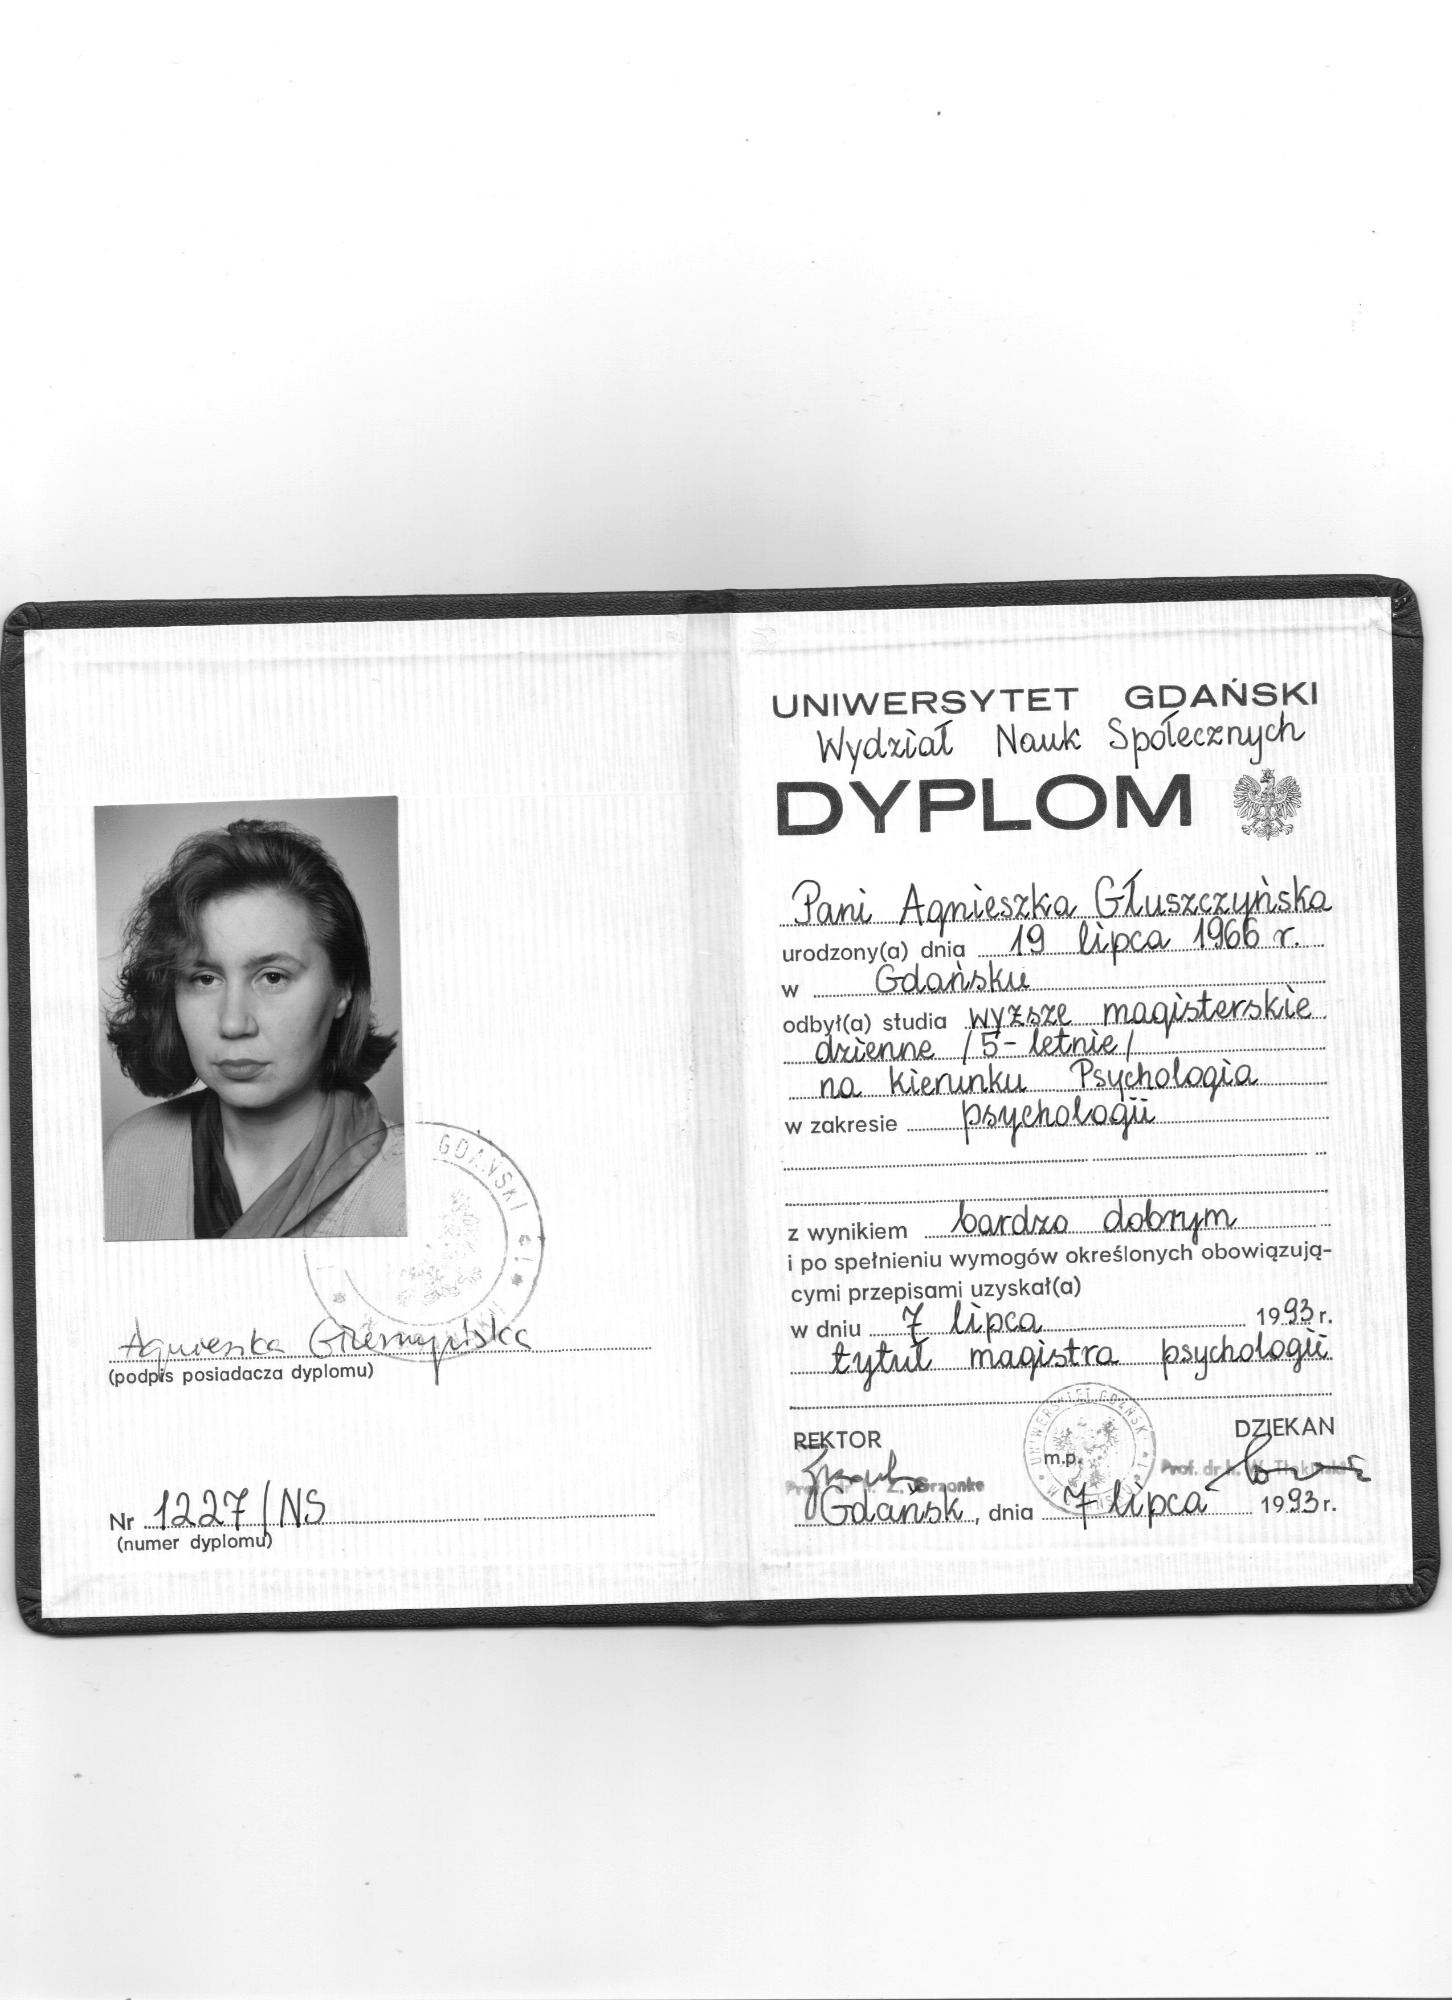 GDAŃSKI
Agnieszka Głuszczyńska
(podpis posiadacza dyplomu)
Nr 1227/NS
(numer dyplomu)
UNIWERSYTET GDAŃSKI
Wydział Nauk Społecznych
DYPLOM
Pani Agnieszka Głuszczyńska
urodzony(a) dnia 19 lipca 1966 r.
w Gdańsku
odbył(a) studia wyższe magisterskie
dzienne /5-letnie/
na kierunku Psychologia
w zakresie psychologii
z wynikiem bardzo dobrym
i po spełnieniu wymogów określonych obowiązują-
cymi przepisami uzyskał(a)
w dniu 7 lipca 1993 r.
tytuł magistra psychologii
REKTOR
DZIEKAN
UNIWERSYTET GDAŃSKI
m.p.
Prof. dr
Prof. dr h.
Gdańsk, dnia 7 lipca 1993 r.